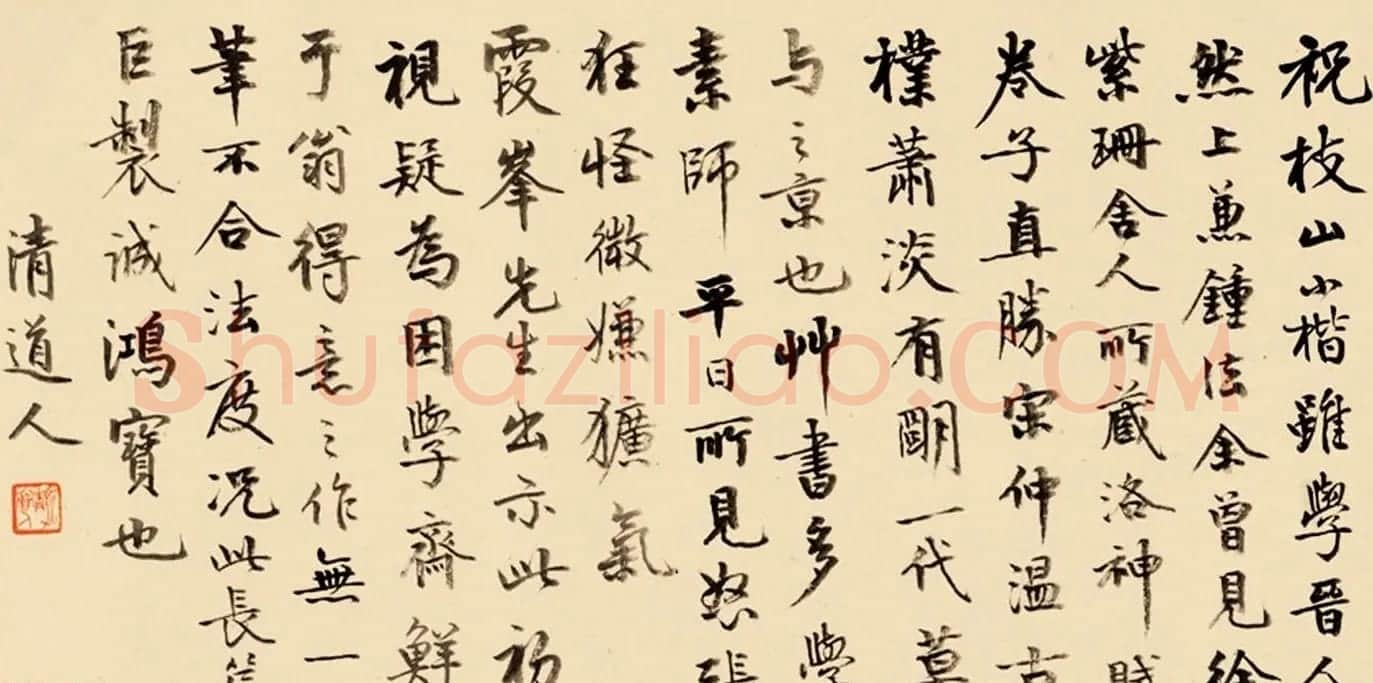 祝枝山小楷雖學晉人
然上兼鍾法余曾見徐
紫珊舍人所藏洛神賦
卷子直勝宋仲温古
樸蕭淡有明一代莫
与之京也艸書多學
素師平日所見怒張
狂怪微嫌獷氣
霞峯先生出示此初
視疑為困學齋鮮
于翁得意之作無一
筆不合法度況此長
巨製誠鴻寶也
清道人
Shufaziliao.COM